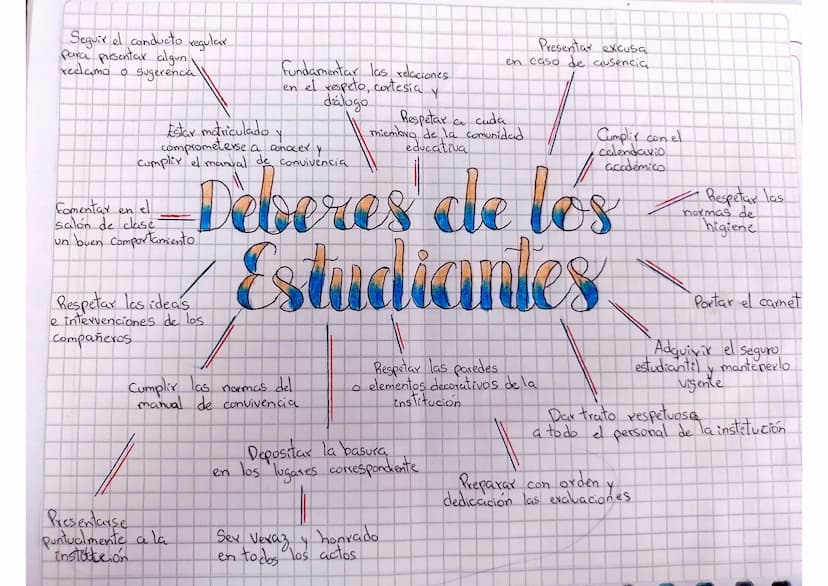 Seguir el conducto regular
para presentar algun
reclamo o sugerencia
Fundamentar las relaciones
en el respeto, cortesía y
diálogo
Presentar excusa
en caso de ausencia
Estar matriculado y
comprometerse a conocer y
cumplir el manual de convivencia
Respetar a cada
miembro de la comunidad
educativa
Cumplir con el
calendario
académico
Deberes de los
Estudiantes
Fomentar en el
salón de clase
un buen comportamiento
Respetar las
normas de
higiene
Respetar las ideas
e intervenciones de los
compañeros
Portar el carnet
Adquirir el seguro
estudiantil y mantenerlo
vigente
Cumplir las normas del
manual de convivencia
Respetar las paredes
o elementos decorativos de la
institución
Dar trato respetuoso
a todo el personal de la institución
Depositar la basura
en los lugares correspondiente
Preparar con orden y
dedicación las evaluaciones
Presentarse
puntualmente a la
institución
Ser veraz y honrado
en todos los actos